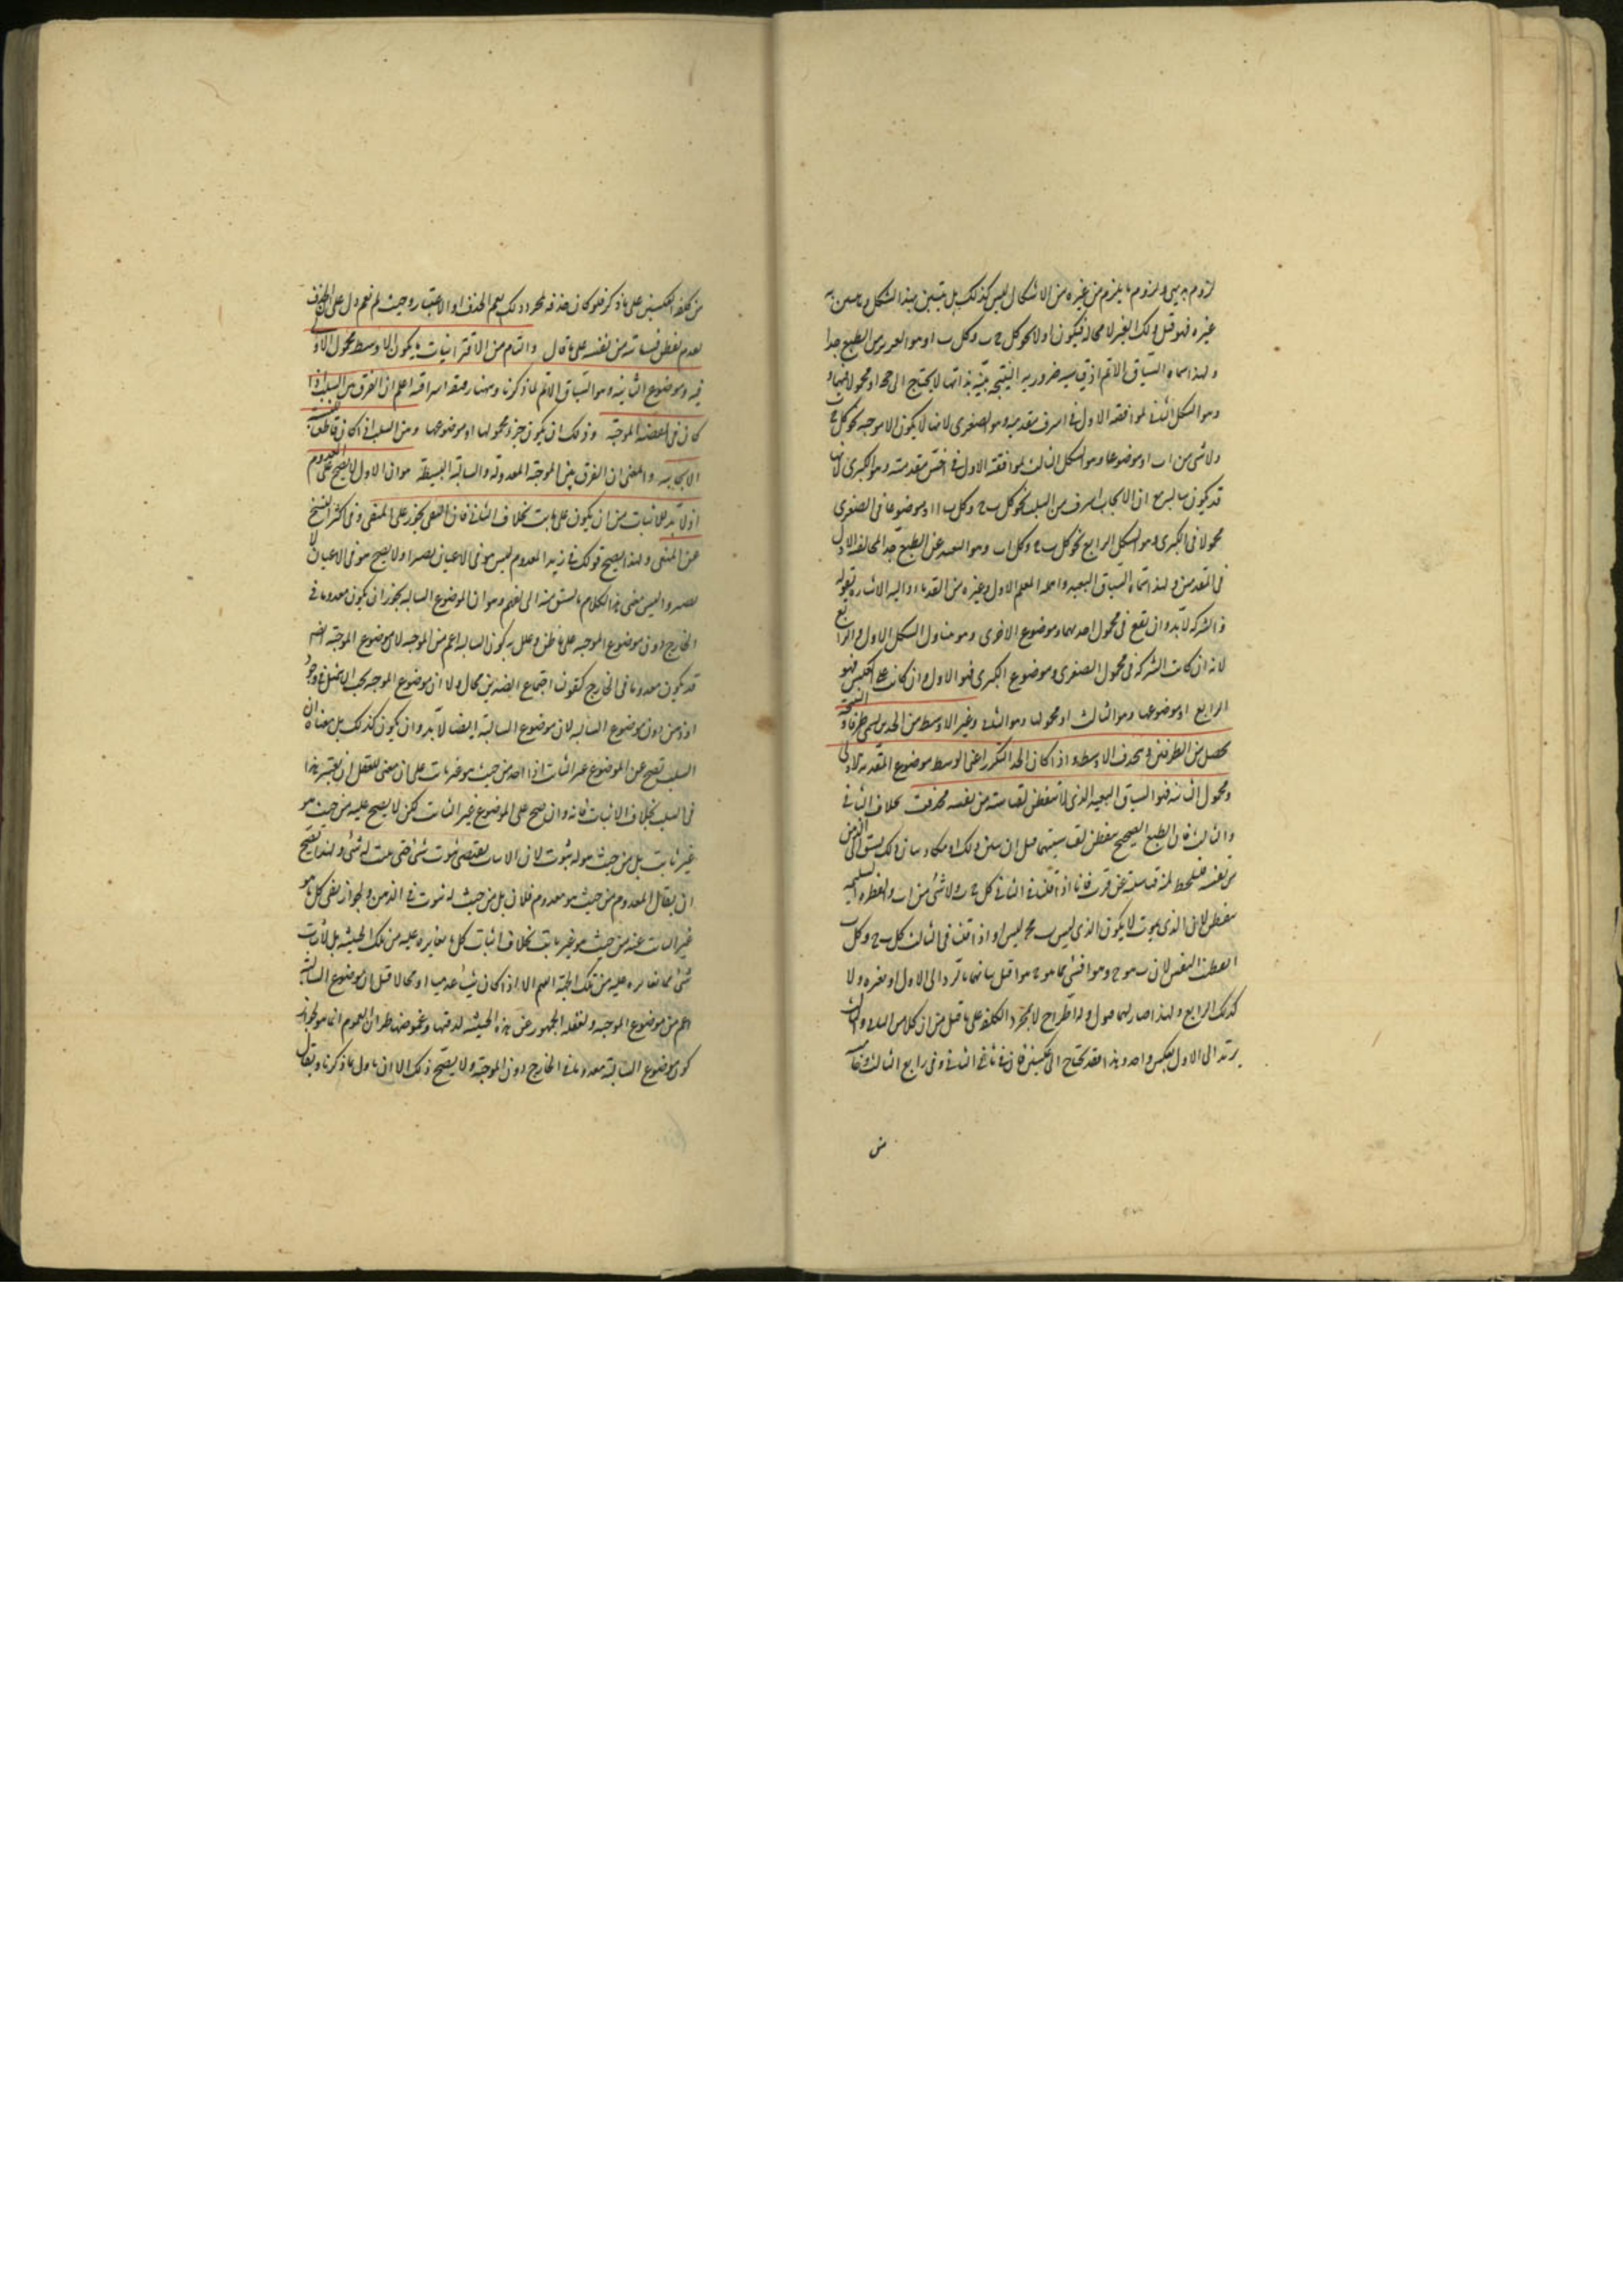 لزوم بديهى ولزوم ما يلزم من غيره من الاشكال ليس كذلك بل يتبين بهذا الشكل وما يتبين به
غيره فهو قبل ذلك الغير لا محالة فيكون اولا نحو كل ج ب وكل ب ا وهو القريب من الطبع جدا
ولهذا سماه السياق الاتم اذ قياسيته ضرورية النتيجة بينة بذاتها لا يحتاج الى حجة او محمولا فيهما
وهو الشكل الثانى لموافقة الاول فى اشرف مقدمتيه وهو الصغرى لانها لا يكون الا موجبة نحو كل ج ب
ولا شى من ا ب او موضوعا وهو الشكل الثالث لموافقته الاول فى اخس مقدمتيه وهو الكبرى لانها
قد يكون سالبة مع ان الايجاب اشرف من السلب نحو كل ب ج وكل ب ا او موضوعا فى الصغرى
محمولا فى الكبرى وهو الشكل الرابع نحو كل ب ج وكل ا ب وهو البعيد عن الطبع جدا لمخالفة الاول
فى المقدمتين ولهذا سماه السياق البعيد واهمله المعلم الاول وغيره من القدماء واليه الاشارة بقوله
والشركة لا بد وان يقع فى محمول احدهما وموضوع الاخرى وهو يتناول الشكل الاول والرابع
لانه ان كانت الشركة فى محمول الصغرى وموضوع الكبرى فهو الاول وان كانت على العكس فهو
الرابع او موضوعهما وهو الثالث او محمولهما وهو الثانى وغير الاوسط من الحدين يسمى طرفا والنتيجة
تحصل من الطرفين ويحذف الاوسط واذا كان الحد المتكرر اعنى الاوسط موضوع المقدمة الاولى
ومحمول الثانية فهو السياق البعيد الذى لا يتفطن لقياسيته من نفسه فحذفت بخلاف الثانى
والثالث فان الطبع الصحيح يتفطن لقياسيتهما قبل ان يبين ذلك او يكاد بيان ذلك يسبق الى الذهن
من نفسه فيلحظ لمية قياسيته عن قرب فانا اذا قلنا فى الثانى كل ج ب ولا شى من ا ب والفطرة السليمة
يتفطن لان الذى يثبت لا يكون الذى ليس ب فج ليس ا واذا قلنا فى الثالث كل ب ج وكل ب ا
تفطنت النفس لان ب هو ج وهو ا فشى مما هو ج هو ا قبل بيانهما بالرد الى الاول او بغيره ولا
كذلك الرابع ولهذا صار لهما قبول وله اطراح لا لمجرد الكلفة على ما قيل من ان كلا من الثانى والثالث
يرتد الى الاول بعكس واحد وهذا فقد يحتاج الى عكسين فان فى ثانى الثانى وفى رابع الثالث
من
من كلفة العكسين على ما ذكر فلو كان حذفه لمجرد ذلك لعم الحذف او الاعتبار وحيث لم نعم دل على ان الحذف
لعدم تفطن قياسيته من نفسه على ما قال والتام من الاقترانيات ما يكون الاوسط محمول الاولى
فيه وموضوع الثانية وهو السياق الاتم لما ذكرنا وههنا دقيقة اشراقية اعلم ان الفرق بين السلب اذا
كان فى القضية الموجبة وذلك ان يكون جزء محمولها او موضوعها وبين السلب اذا كان قاطعا للنسبة
الايجابية والمعنى ان الفرق بين الموجبة المعدولة والسالبة البسيطة هو ان الاول لا يصح على المعدوم
اذ لا بد للاثبات من ان يكون على ثابت بخلاف الثانى فان النفى يجوز على المنفى وفى اكثر النسخ
عن المنفى ولهذا يصح قولك فى زيد المعدوم ليس هو فى الاعيان بصيرا ولا يصح هو فى الاعيان لا
بصير وليس معنى هذا الكلام ما يستبق منه الى الفهم وهو ان الموضوع السالبة يجوز ان يكون معدوما فى
الخارج دون موضوع الموجبة على ما ظن وعلل به كون السالبة اعم من الموجبة لان موضوع الموجبة ايضا
قد يكون معدوما فى الخارج كقولنا اجتماع الضدين محال ولا ان موضوع الموجبة يجب ان يتمثل فى وجود
او ذهن دون موضوع السالبة لان موضوع السالبة ايضا لا بد وان يكون كذلك بل معناه ان
السلب يصح عن الموضوع غير الثابت اذا اخذ من حيث هو غير ثابت على ان معنى للعقل ان يعتبر هذا
فى السلب بخلاف الاثبات فانه وان صح على الموضوع غير الثابت لكن لا يصح عليه من حيث هو
غير ثابت بل من حيث هو له ثبوت لان الاثبات يقتضى ثبوت شى حتى يثبت له شى ولهذا يصح
ان يقال المعدوم من حيث هو معدوم فلان بل من حيث له ثبوت فى الذهن ولجواز نفى كل ما هو
غير الثابت عنه من حيث هو غير ثابت بخلاف اثبات كل ما يغايره عليه من تلك الحيثية بل لاثبات
شى مما يغايره عليه من تلك الجهة اللهم الا اذا كان شيئا عدميا او محالا قيل ان موضوع السالبة
اعم من موضوع الموجبة ولغفلة الجمهور عن هذه الحيثية لدقتها وغموضها ظن ان العموم انما هو لجواز
كون موضوع السالبة معدوما فى الخارج دون الموجبة ولا يصح ذلك الا ان ياول بما ذكرنا ويقال